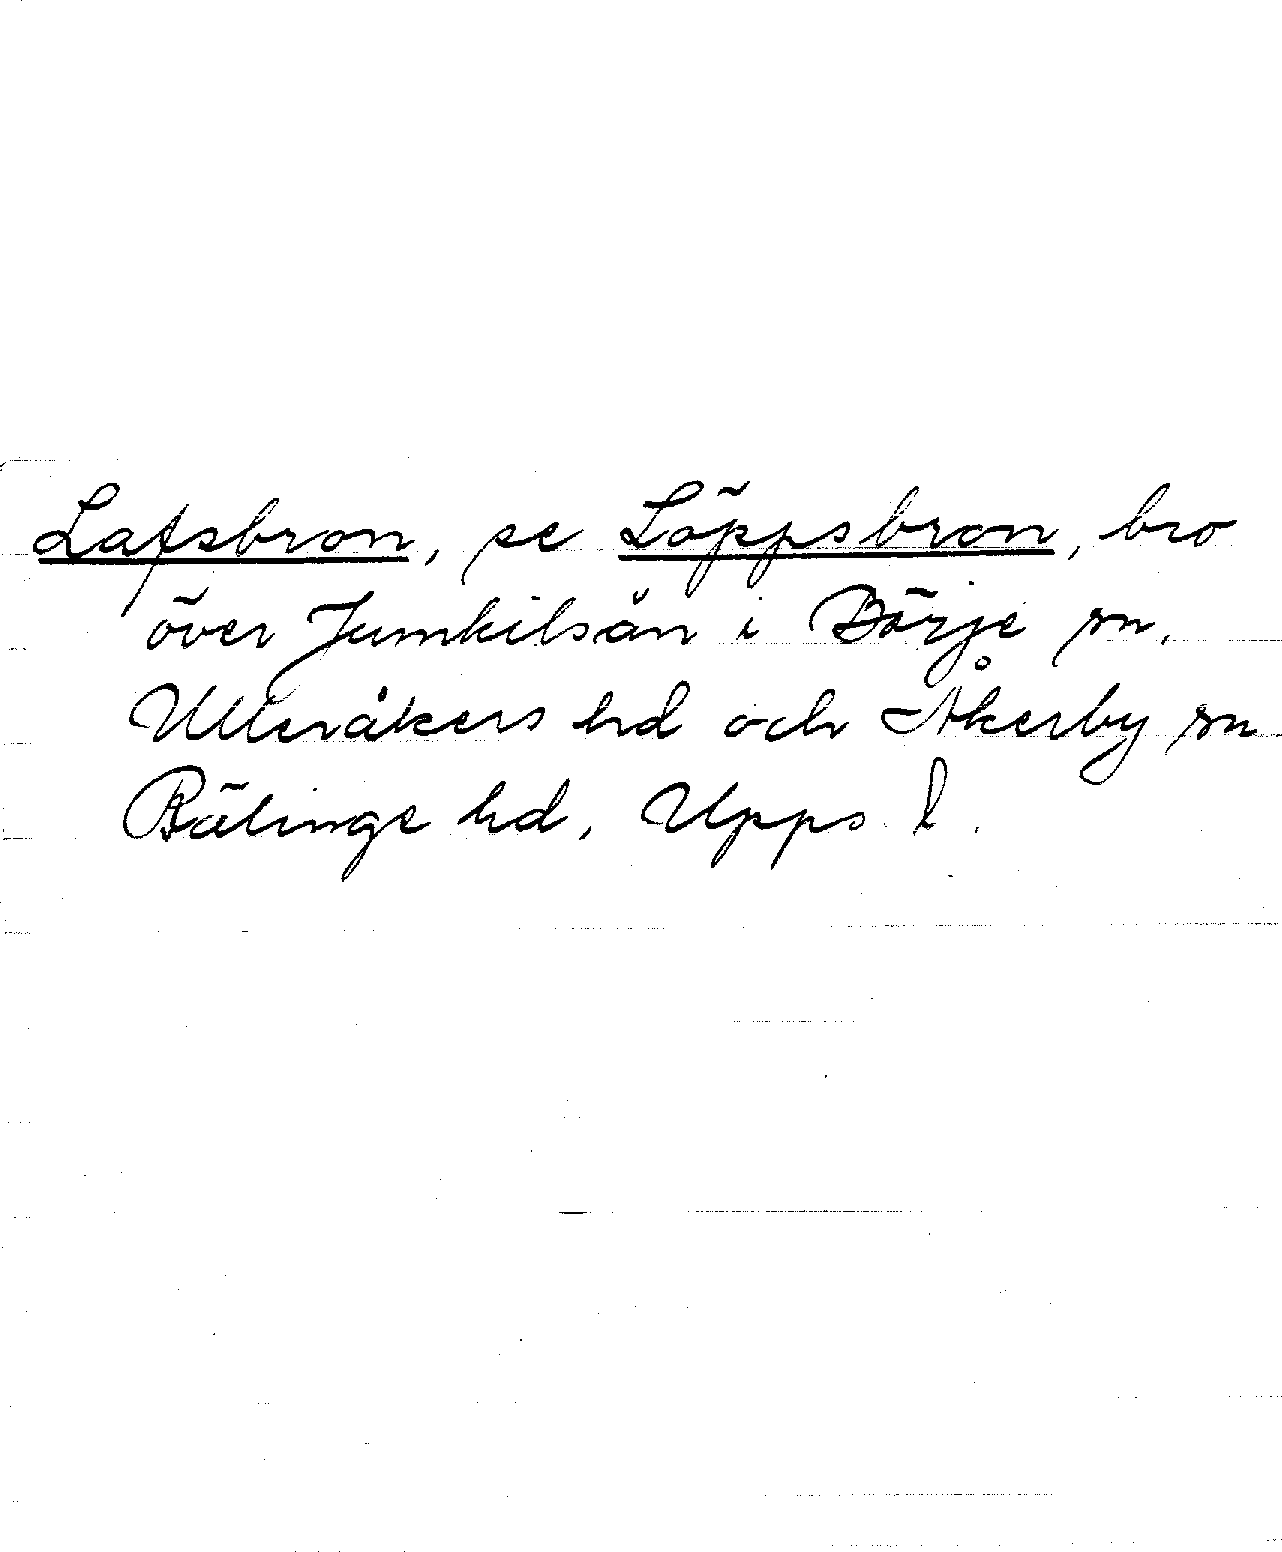 Lafsbron, se Löppsbron, bro
över Jumkilsån i Börje sn,
Ulleråkers hd och Åkerby sn
Bälinge hd, Upps l.